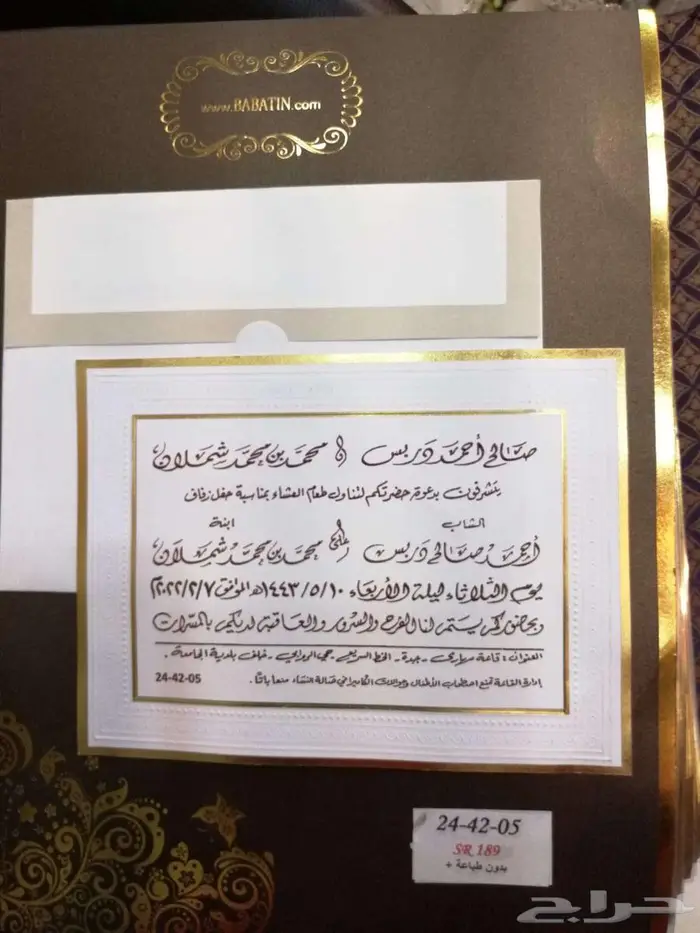 www.BABATIN.com
صالح أحمد دربس و محمد بن محمد شملان
يتشرفون بدعوة حضرتكم لتناول طعام العشاء بمناسبة حفل زفاف
الشاب ابنة
أحمد صالح دربس على محمد بن محمد شملان
يوم الثلاثاء ليلة الأربعاء ١٤٤٣/٥/١٠هـ الموافق ٢٠٢٢/٢/٧م
وبحضوركم يستتم لنا الفرح والسرور والعاقبة لديكم بالمسرات
العنوان : قاعة - جدة - الخط السريع - حي الروابي - خلف بلدية الجامعة .
إدارة القاعة تمنع اصطحاب الأطفال وجوالات الكاميرا في صالة النساء منعا باتا .
24-42-05
24-42-05
SR 189
بدون طباعة +
حراج